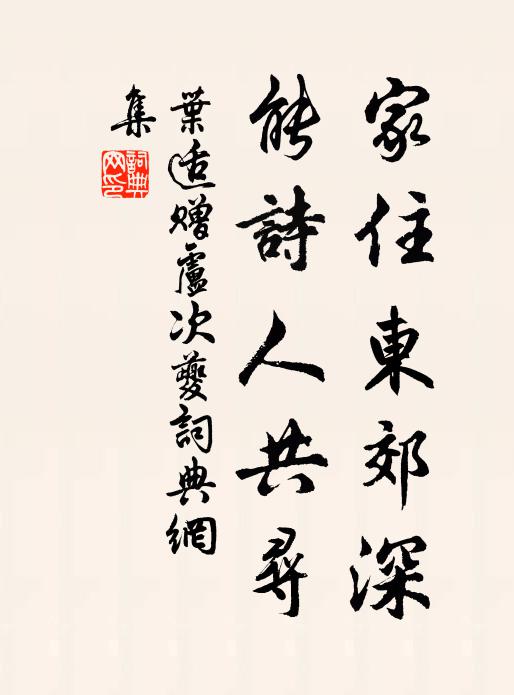 家住東郊深
能詩人共尋
葉适贈盧次夔詞典網
集
詞典網印